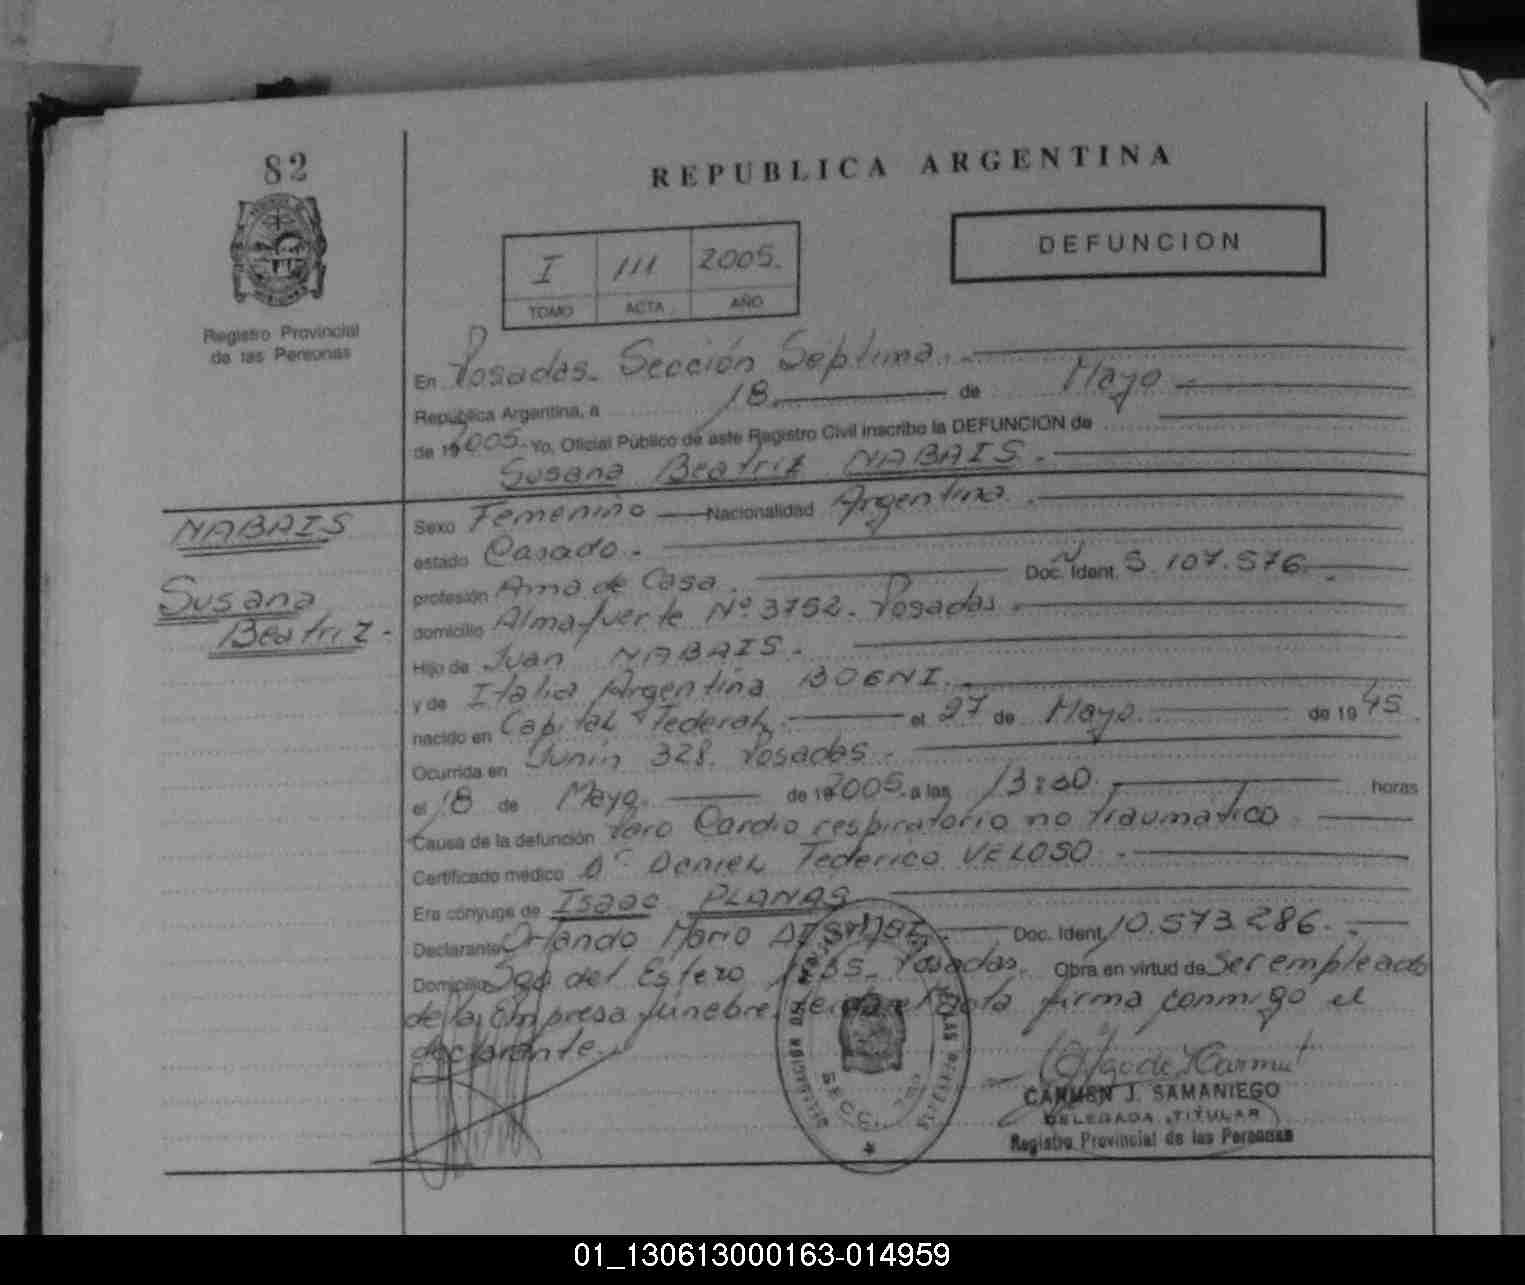 82
REPUBLICA ARGENTINA
DEFUNCION
I 111 2005.
TOMO ACTA AÑO
Registro Provincial
de las Personas
En Posadas. Sección Septima.
República Argentina, a 18 de Mayo
de 19 2005. Yo, Oficial Público de este Registro Civil inscribo la DEFUNCION de
Susana Beatriz NABAIS.
NABAIS
Susana
Beatriz.-
Sexo Femenino Nacionalidad Argentina.
estado Casado.
profesión Ama de Casa. Doc. Ident. 5.107.576.
domicilio Almafuerte Nº 3752. Posadas.
Hijo de Juan NABAIS.
y de Italia Argentina BOENI.
nacido en Capital Federal, el 27 de Mayo de 19 45.
Ocurrida en Junín 328. Posadas.
el 18 de Mayo. de 19 2005. a las 13:30. horas
Causa de la defunción Paro Cardio respiratorio no traumático
Certificado médico Dr Daniel Federico VELOSO.
Era cónyuge de Isaac PLANAS
Declarante Orlando Mario Doc. Ident. 10.573.286.
Domicilio Sgo del Estero Posadas. Obra en virtud de Ser empleado
de la Empresa fúnebre. firma conmigo el
declarante.
CARMEN J. SAMANIEGO
DELEGADA TITULAR
Registro Provincial de las Personas
01_130613000163-014959